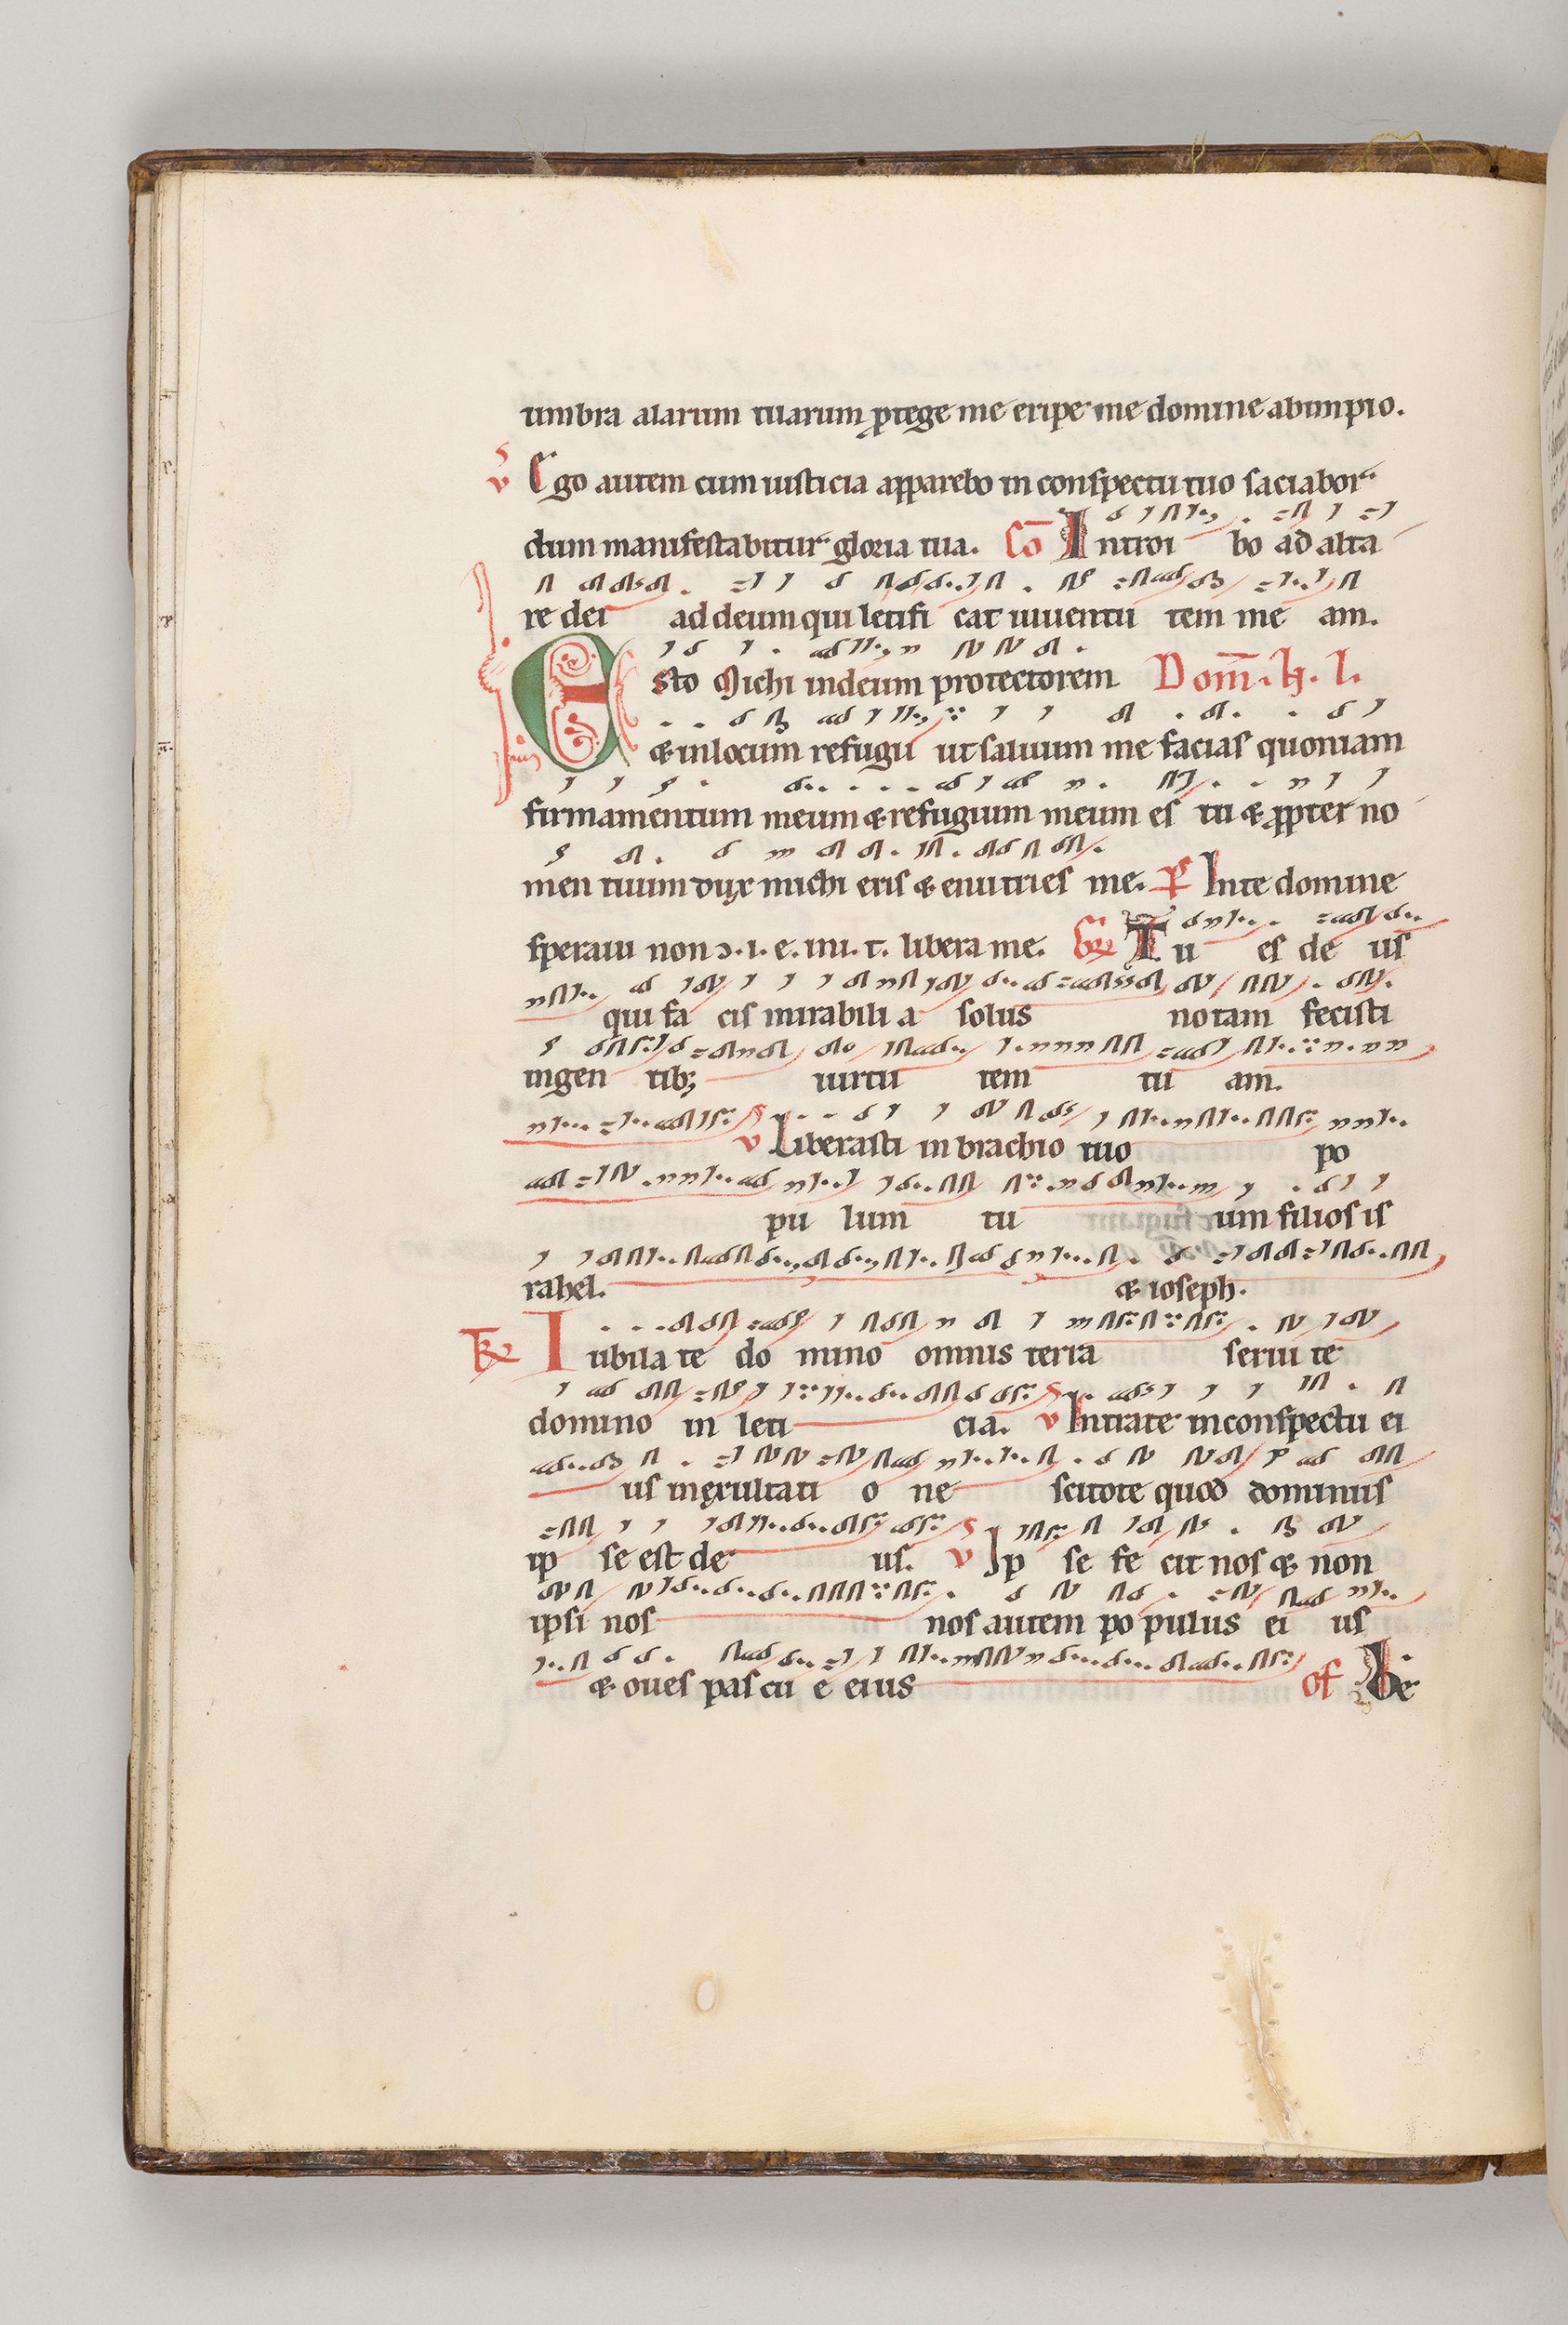 umbra alarum tuarum ꝓtege me eripe me domine abimpio.
v Ego autem cum iusticia apparebo in conspectu tuo saciabor
dum manifestabitur gloria tua. Cō Introi bo ad alta
re dei ad deum qui letifi cat iuuentu tem me am.
Esto Michi indeum protectorem Dom̄. ɧ. l.
& inlocum refugii ut saluum me facias quoniam
firmamentum meum & refugium meum es tu & ꝓpter no
men tuum dux michi eris & enutries me. P̄ Inte domine
speraui non ɔ. i. e. iiii. t. libera me. Gr̄ Tu es de us
qui fa cis mirabili a solus notam fecisti
ingen tib; uirtu tem tu am.
v Liberasti in brachio tuo po
pu lum tu um filios is
rahel. & ioseph.
Tr̄ Iubila te do mino omnis terra serui te
domino in leti cia. v Intrate inconspectu ei
us inexultati o ne scitote quod dominus
ip se est de us. v Ip se fe cit nos & non
ipsi nos nos autem po pulus ei us
& oues pascu e eius of Be